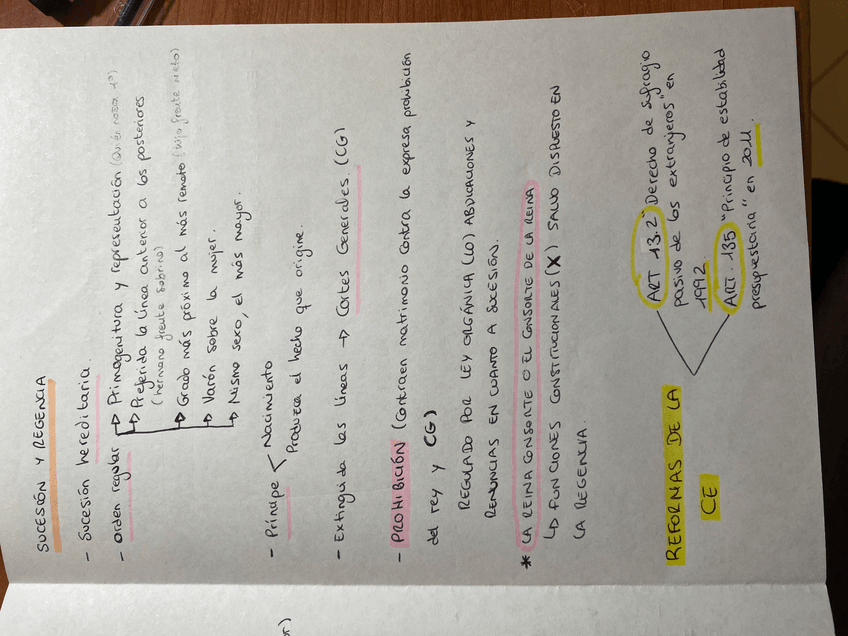 SUCESIÓN Y REGENCIA
- Sucesión hereditaria.
- Orden regular → Primogenitura y representación (Quién nazca 1º)
→ Preferida la línea anterior a las posteriores
(hermano frente sobrino)
→ Grado más próximo al más remoto (hijo frente nieto)
→ Varón sobre la mujer.
→ Mismo sexo, el más mayor.
- Príncipe < Nacimiento
Produzca el hecho que origine.
- Extinguida las líneas → Cortes Generales. (CG)
- PROHIBICIÓN (Contraen matrimonio contra la expresa prohibición
del rey y CG)
REGULADO POR LEY ORGÁNICA (LO) ABDICACIONES Y
RENUNCIAS EN CUANTO A SUCESIÓN.
* LA REINA CONSORTE O EL CONSORTE DE LA REINA
↳ FUNCIONES CONSTITUCIONALES (X) SALVO DISPUESTO EN
LA REGENCIA.
REFORMAS DE LA
CE
ART 13.2 "Derecho de sufragio
pasivo de los extranjeros" en
1992.
ART. 135 "Principio de estabilidad
presupuestaria" en 2011.
or)